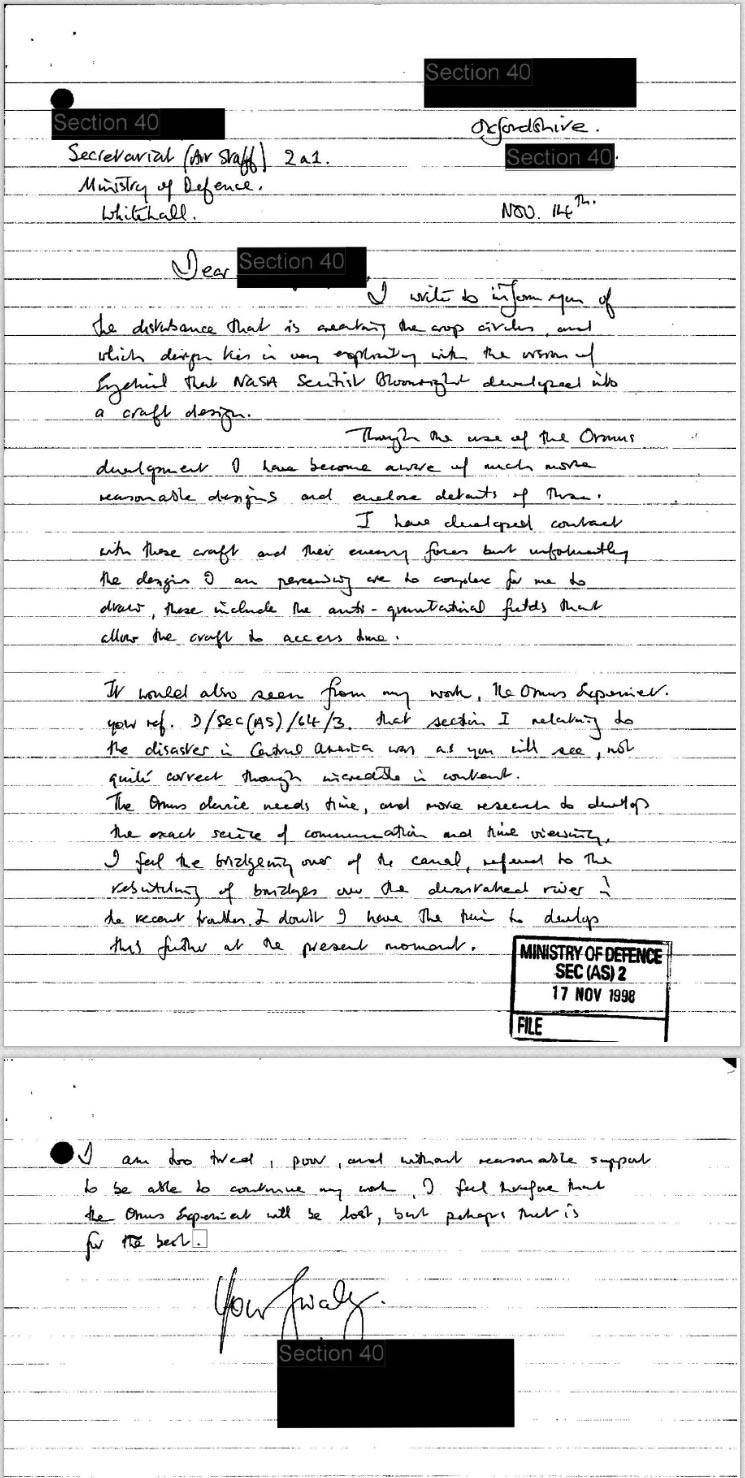 Section 40
Section 40
Oxfordshire.
Secretarial (Air Staff) 2a1.
Section 40
Ministry of Defence.
Whitehall.
NOV. 14th.
Dear Section 40
I write to inform you of
the disturbance that is creating the crop circles, and
which design ties in very explicitly with the version of
Ezekiel that NASA Scientist developed into
a craft design.
Through the use of the Ormus
development I have become aware of much more
reasonable designs and enclose details of them.
I have developed contact
with these craft and their energy forces but unfortunatly
the designs I am perceiving are to complex for me to
draw, these include the anti-gravitational fields that
allow the craft to access time.
It would also seem from my work, the Ormus Experiment.
your ref. D/Sec(AS)/64/3. that section I relating to
the disaster in Central America was as you will see, not
quite correct though incredible in content.
The Ormus device needs time, and more research to develop
the exact science of communication and time viewing.
I feel the bridgeing over of the canal, refered to the
rebuilding of bridges over the devastated river in
the recent I doubt I have the time to develop
this further at the present moment.
MINISTRY OF DEFENCE
SEC (AS) 2
17 NOV 1998
FILE
I am too tired, poor, and without reasonable support
to be able to continue my work, I feel therefore that
the Ormus Experiment will be lost, but perhaps that is
for the best.
Section 40